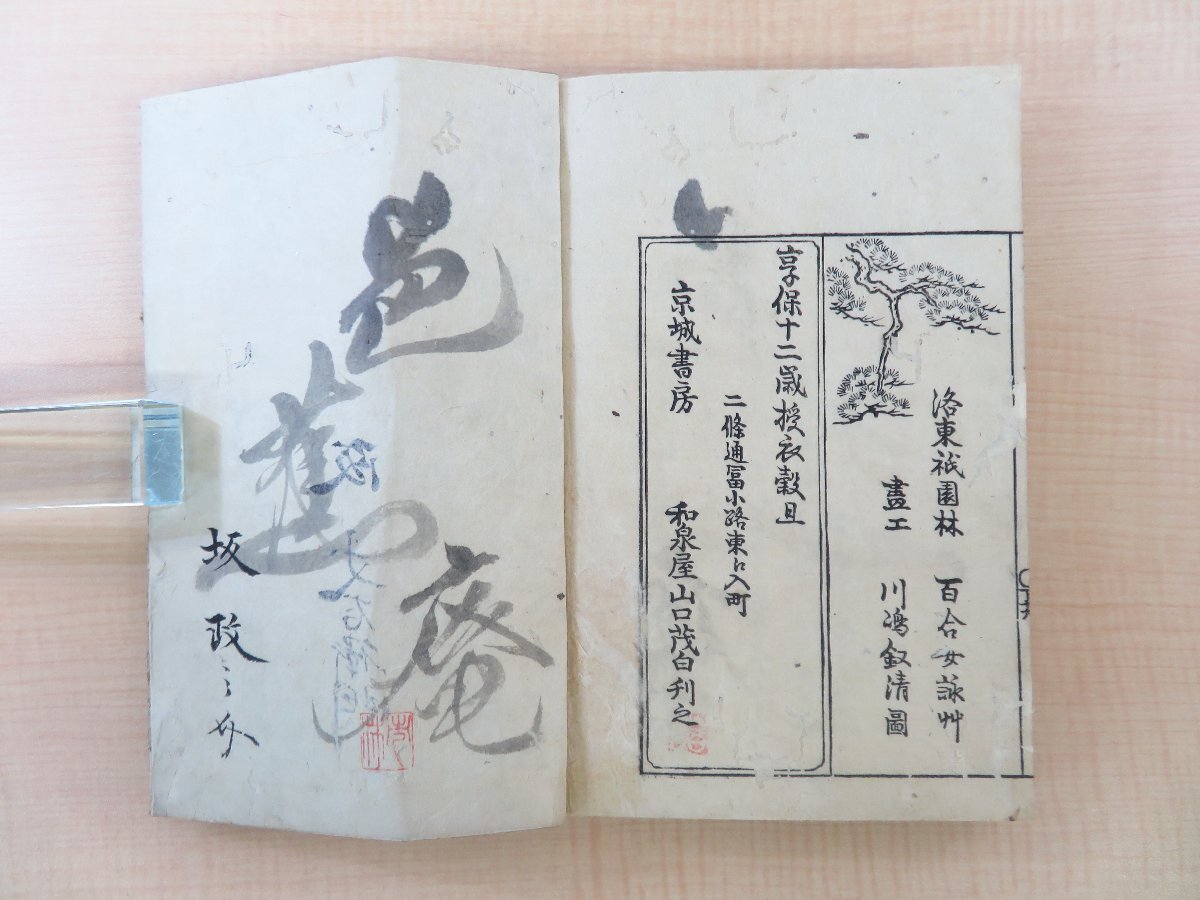 洛東祇園林　百合女詠艸
畫工　川嶋叙清圖
享保十二歳授衣穀旦
二條通冨小路東ヘ入町
京城書房　和泉屋山口茂白刋之
邑
舊
庵
坂政